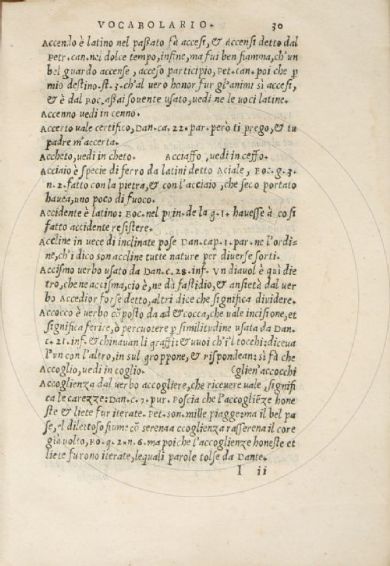 VOCABOLARIO. 30
Accendo è latino nel passato fà accesi, & accensi detto dal
Petr. can. nei dolce tempo, infine, ma fui ben fiamma, ch'un
bel guardo accense, acceso participio, Pet. can. poi che p
mio destino. st. 3. ch'al uero honor fur gl'animi sì accesi,
& è dal Boc. assai souente usato, uedi ne le uoci latine.
Accenno uedi in cenno.
Accerto uale certifico, Dan. ca. 22. par. però ti prego, & tu
padre m'accerta.
Accheto, uedi in cheto. Acciaffo, uedi in ceffo.
Acciaio è specie di ferro da latini detto Aciale, Boc. g. 3.
n. 2. fatto con la pietra, & con l'acciaio, che seco portato
hauea, uno poco di fuoco.
Accidente è latino: Boc. nel prin. de la g. 1. hauesse à cosi
fatto accidente resistere.
Accline in uece di inclinate pose Dan. cap. 1. par. ne l'ordi-
ne, ch'i dico son accline tutte nature per diuerse sorti.
Accismo uerbo usato da Dan. c. 28. inf. Vn diauol è quì die
tro, che ne accisma, cio è, ne dà fastidio, & ansietà dal uer
bo Accedior forse detto, altri dice che significa diuidere.
Accocco è uerbo cõposto da ad & cocca, che uale incisione, et
significa ferire, ò percuotere p similitudine usata da Dan.
c. 21. inf. & chinauan li graffi: & uuoi ch'il tocchi: diceua
l'un con l'altro, in sul groppone, & rispondean: si fà che
Accoglio, uedi in coglio. (glien'accocchi
Accoglienza dal uerbo accogliere, che riceuere uale, signifi
ca le carezze: Dan. c. 7. pur. Poscia che l'accoglieze hone
ste & liete fur iterate. Pet. son. mille piagge: ma il bel pa
ese, e'l dilettoso fiume cõ serena accoglienza rasserena il core
già uolto, Bo. g. 2. n. 6. ma poiche l'accoglienze honeste et
liete furono iterate, lequali parole tolse da Dante.
I ii